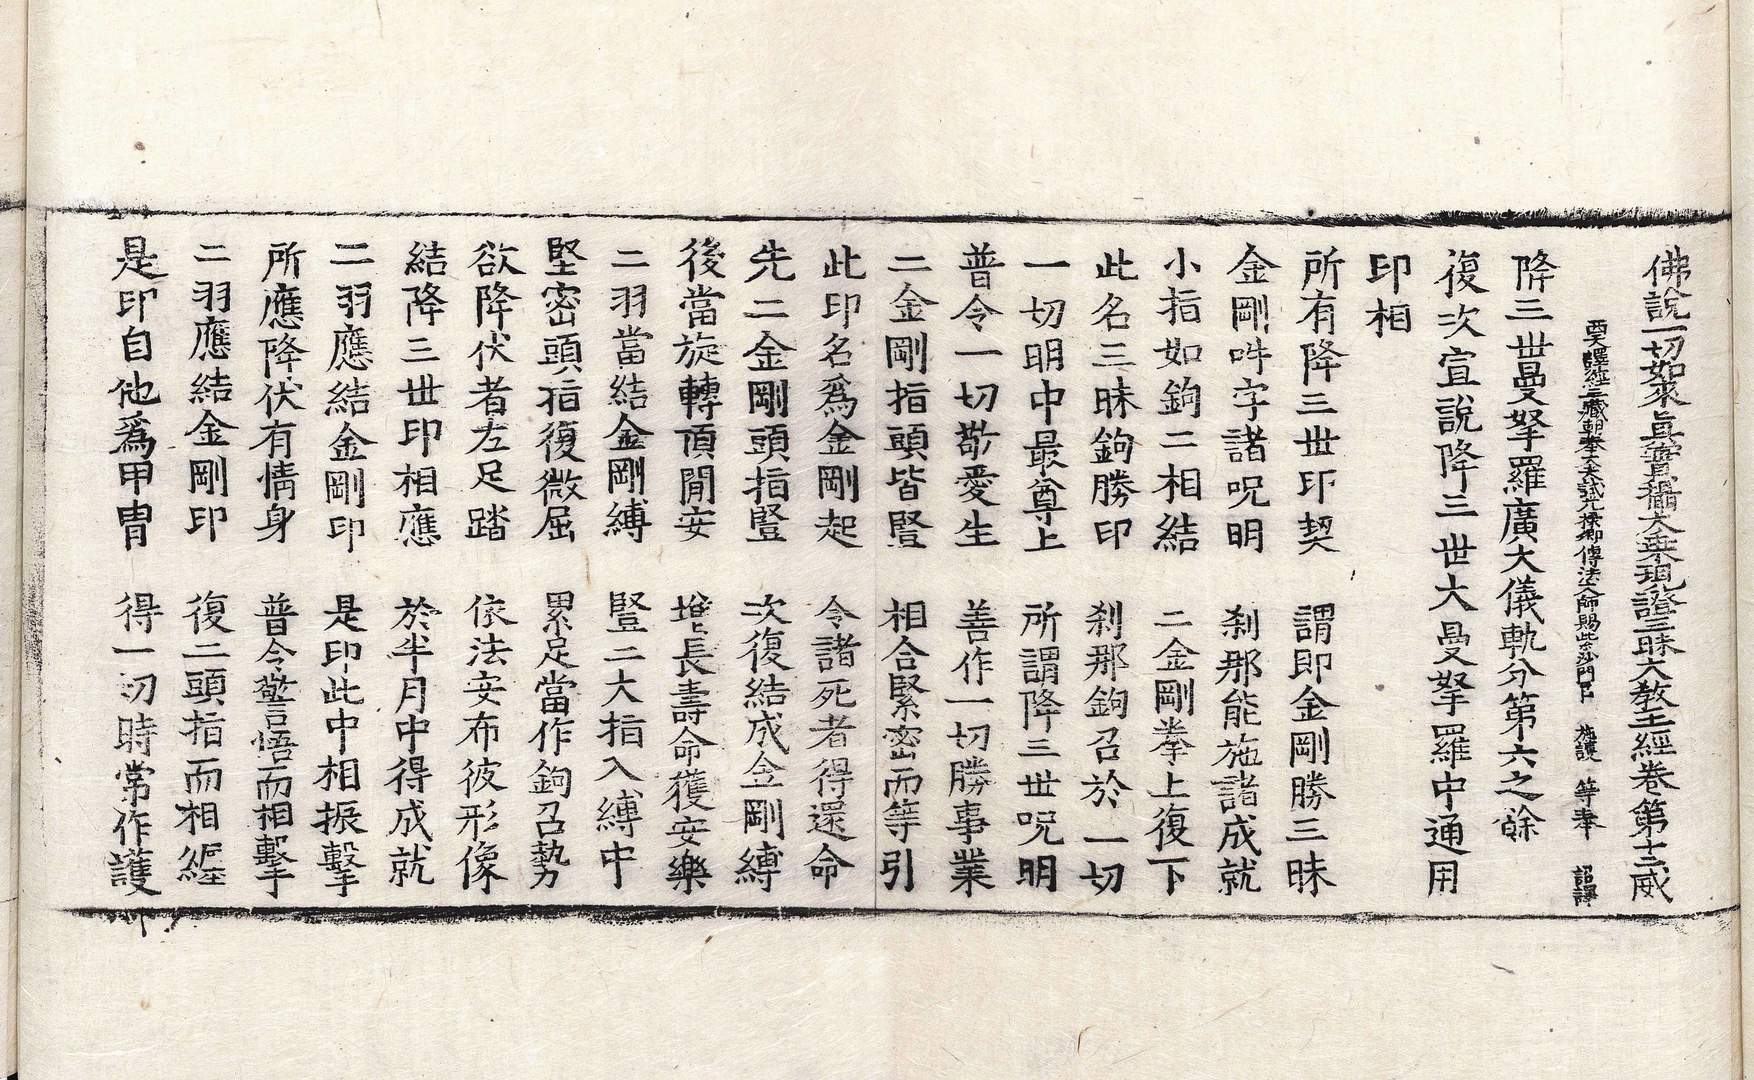 佛說一切如來眞實攝大乘現證三昧大敎王經卷第十二 威
西天譯經三藏朝奉大夫試光祿卿傳法大師賜紫沙門臣 施護 等奉 詔譯
降三世曼拏羅廣大儀軌分第六之餘
復次宣說降三世大曼拏羅中通用
印相
所有降三世印契 謂卽金剛勝三昧
金剛吽字諸呪明 刹那能施諸成就
小指如鉤二相結 二金剛拳上復下
此名三昧鉤勝印 刹那鉤召於一切
一切明中最尊上 所謂降三世呪明
普令一切敬愛生 善作一切勝事業
二金剛指頭皆豎 相合緊密而等引
此印名爲金剛起 令諸死者得還命
先二金剛頭指豎 次復結成金剛縛
後當旋轉頂閒安 增長壽命獲安樂
二羽當結金剛縛 豎二大指入縛中
堅密頭指復微屈 累足當作鉤召勢
欲降伏者左足踏 依法安布彼形像
結降三世印相應 於半月中得成就
二羽應結金剛印 是印此中相振擊
所應降伏有情身 普令警悟而相擊
二羽應結金剛印 復二頭指而相纏
是印自他爲甲冑 得一切時常作護